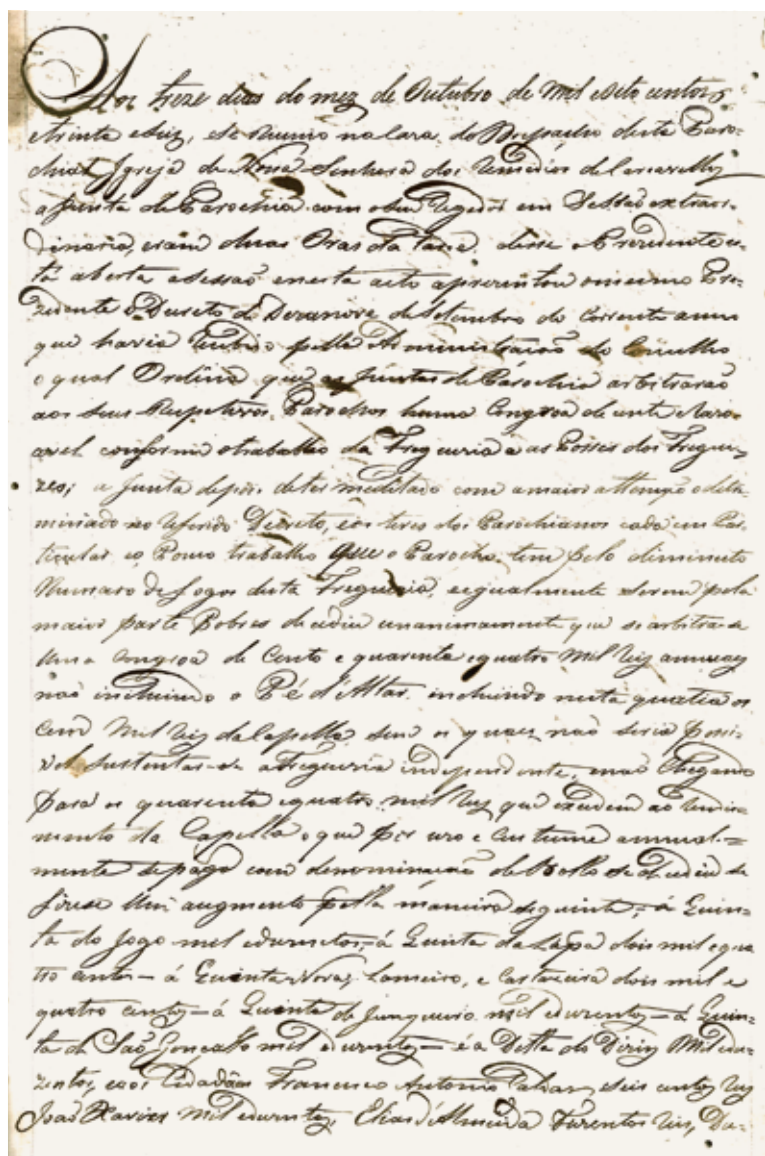 Aos treze dias do mez de Outubro de mil oito centos
e trinta e seiz, se reunio na Caza do Despacho desta Paro-
chial Igreja de Nossa Senhora dos Remedios de Carcavellos
a Junta de Parochia com o seu Regedor em Sessão extraor-
dinaria, eram duas Oras da Tarde disse o Prezidente es-
tá aberta a sessão e nesta acto aprezentou o mesmo Pre-
zidente o Decreto de Dezanove de Setembro do corrente anno
que havia recebido pella Administração do Concelho
o qual Ordena que as Juntas de Parochia arbitrarão
aos seus Respetivos Parochos huma Congroa decente e laro-
avel conforme o trabalho da Freguezia e as Posses dos Fregue-
zes; a Junta depois de ter meditado com a maior attenção o deter-
minado no referido Decreto, e os teres dos Parochianos cada um em Par-
ticular e o Pouco trabalho que o Parocho tem pelo diminuto
Numaro de Fogos desta Freguezia, e egualmente serem pela
maior parte Pobres decediu unanimamente que se arbitrase
uma congroa de Cento e quarenta e quatro mil reis annuaes
não incluindo o Pé d'Altar incluindo nesta quatia os
cem mil reis da Capella sem os quaes não seria possi-
vel sustentar-se a Freguezia independente, e não Chegando
para os quarenta e quatro mil reis que excedem ao rendi-
mento da Capella o que por uzo e custume annual-
mente se paga com denominação de Bollo se decediu se
fizese um augmento pella maneira seguinte, á Quin-
ta do Jogo mil e duzentos, á Quinta da Lapa dois mil e qua
tro centos — á Quinta Nova, Lameiro, e Cartaxeira dois mil e
quatro centos — á Quinta do Junqueiro mil e duzentos — á Quin-
ta de São Goncallo mil e duzentos — é a Detta do Diniz Mil e du-
zentos, e aos Cidadãos Francisco Antonio Talhas, seis centos reis
João Xavier mil e duzentos, Elias d'Almeida Duzentos reis, Da-